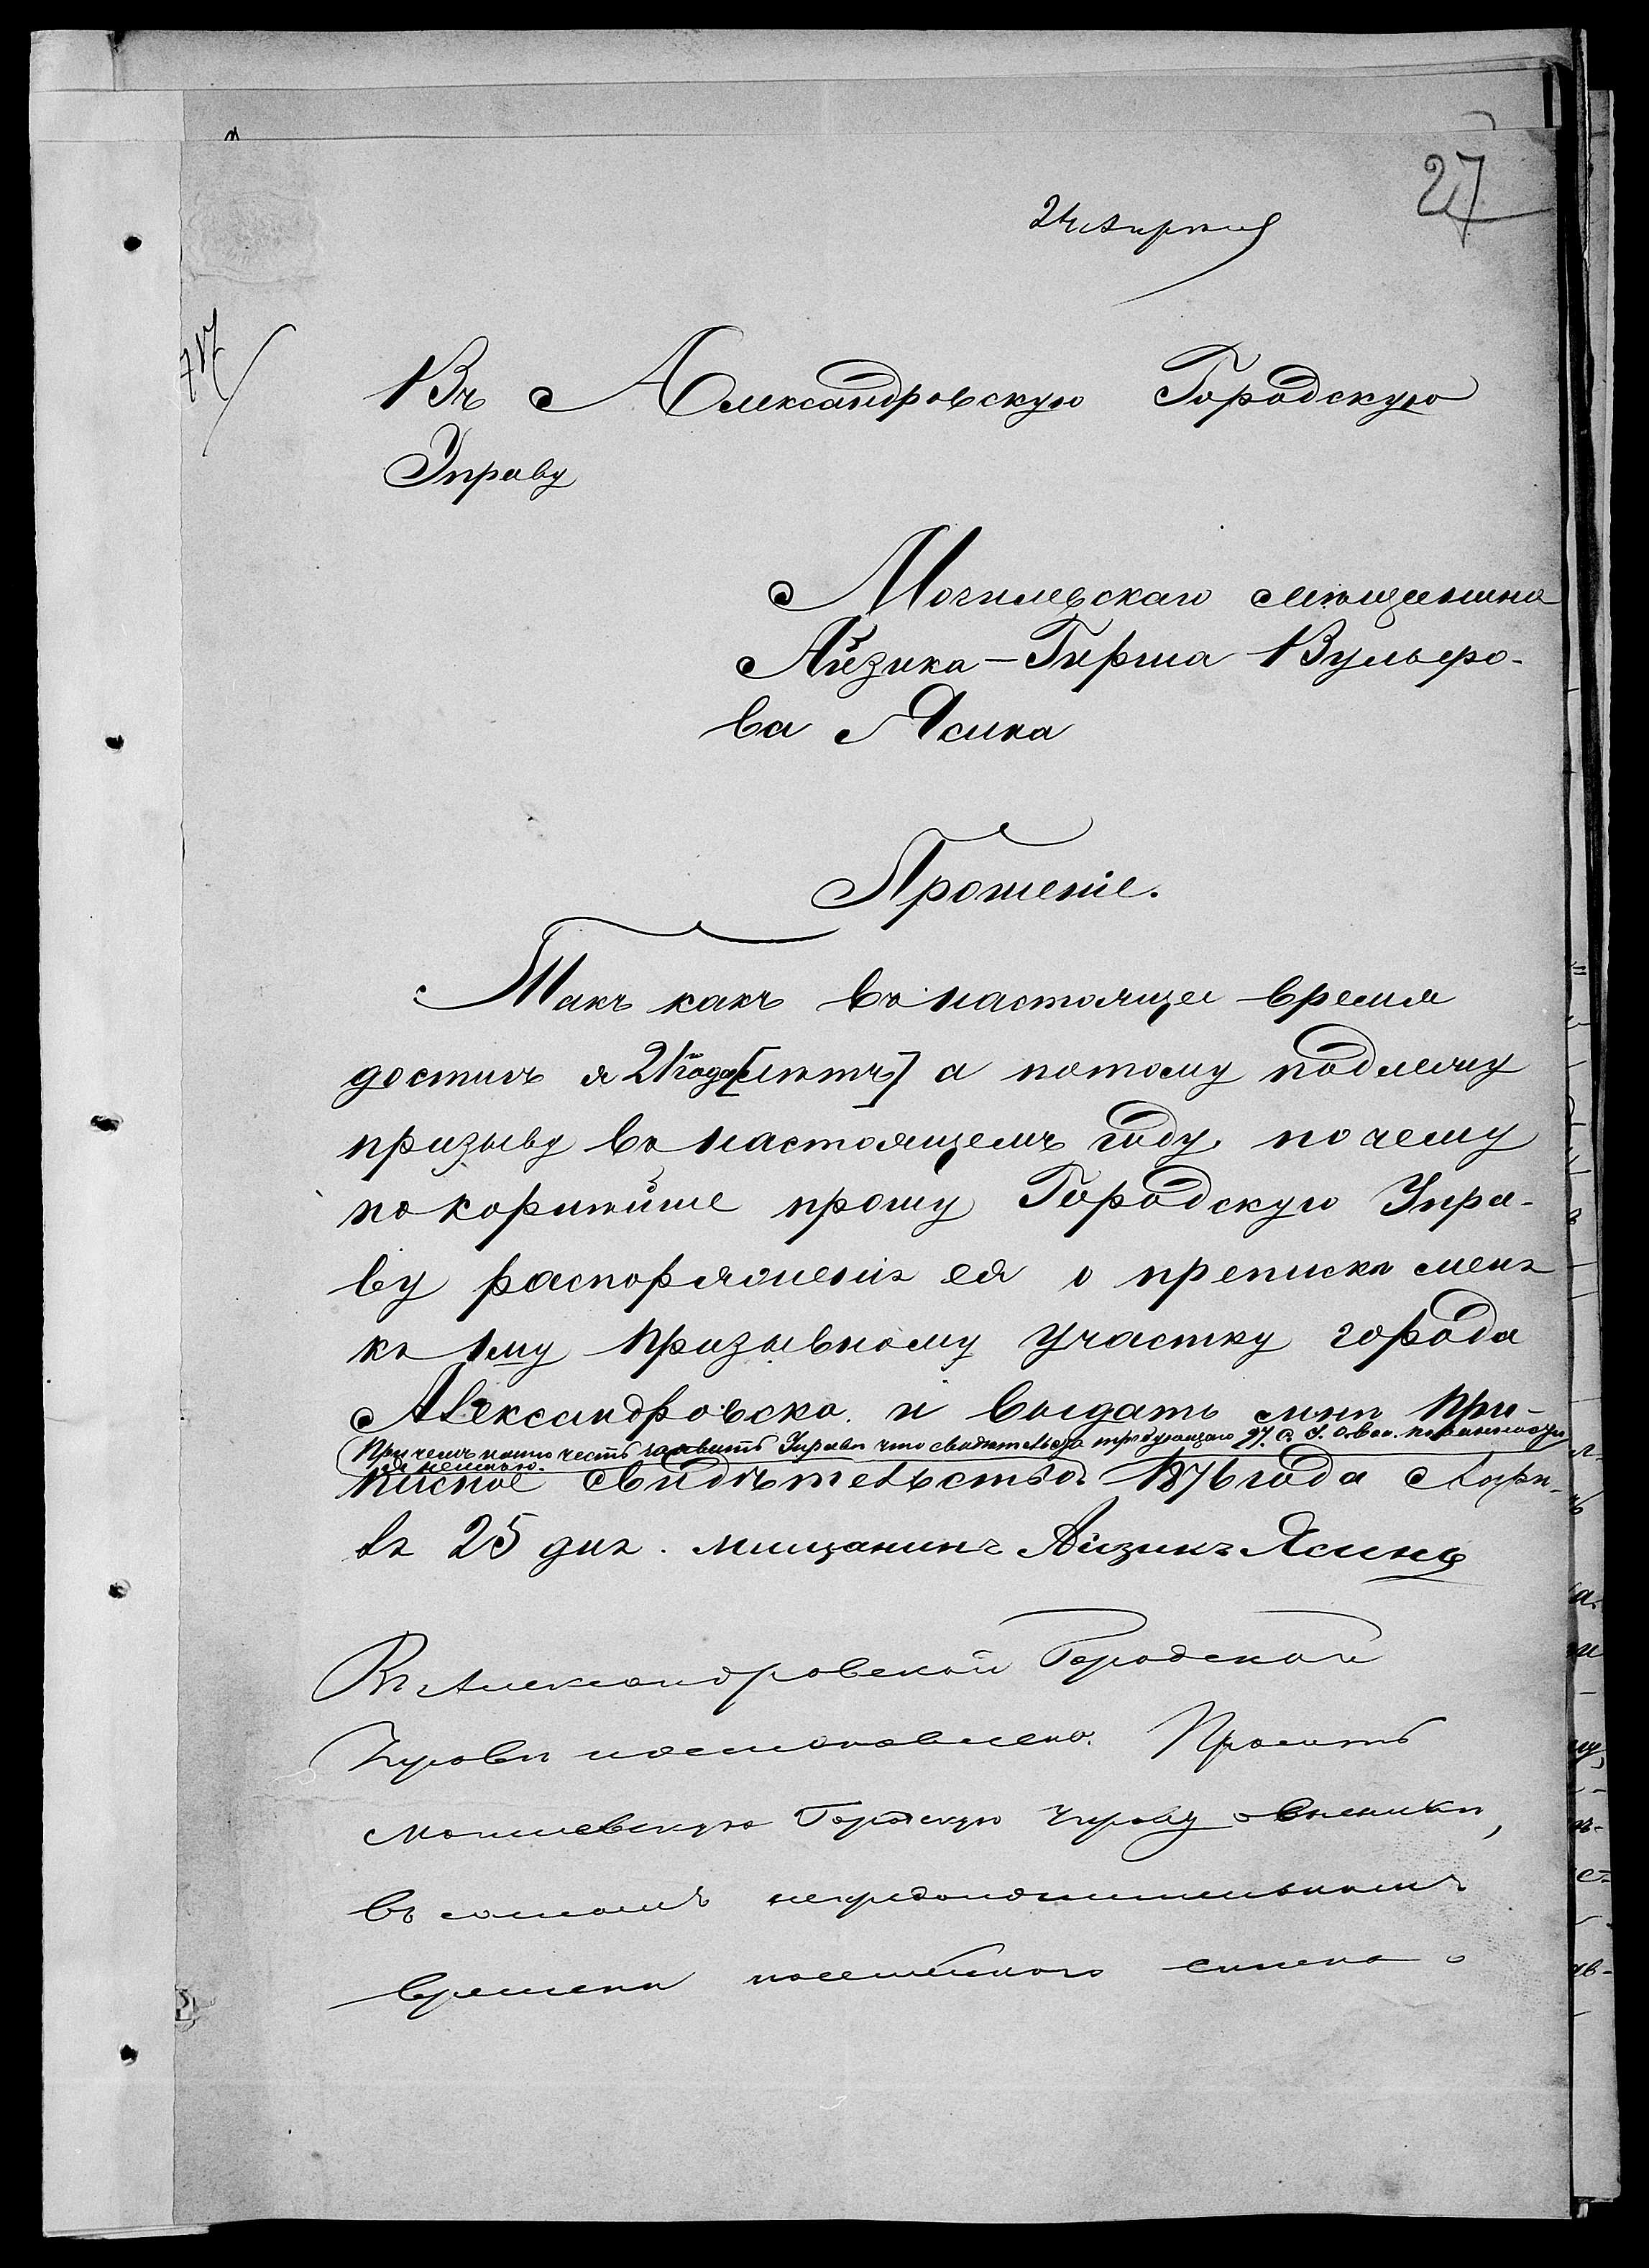 27
24 Апреля
717
Въ Александровскую Городскую
Управу
Могилевскаго мѣщанина
Айзика-Гирша Вульфо-
ва Ясина
Прошеніе.
Такъ какъ въ настоящее время
достигъ я 21го года [лѣтъ] а потому подлежу
призыву въ настоящемъ году, по чему
покорнѣйше прошу Городскую Упра-
ву распоряженія ея о преписки меня
къ 1му призывному участку города
Александровска и выдать мнѣ при-
При чемъ имѣю честь заявить Управѣ что свидѣтельства требующаго 97. С. У. о воин. повинности
я не имѣю.
писное свидѣтельство. 1876 года Апрѣ-
ля 25 дня. мищанинъ Айзикъ Ясинъ
Въ Александровской Городской
Управѣ постановлено: Просить
Могилевскую Городскую Управу о высылкѣ,
въ самомъ непродолжительномъ
времени посемейнаго списка о